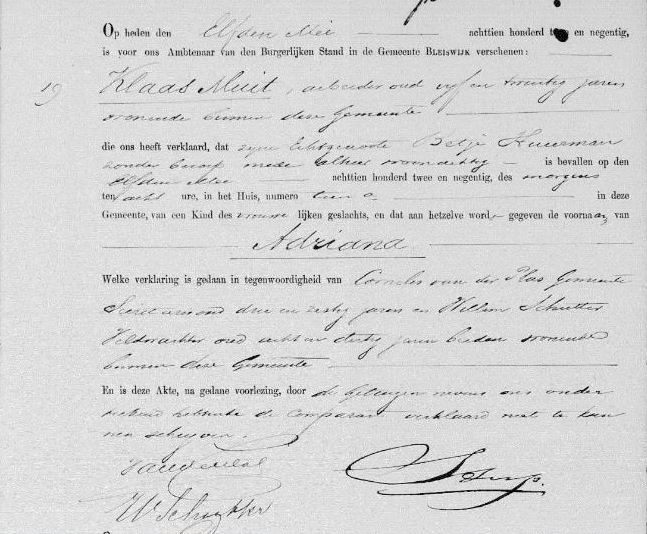 Op heden den Elfden Mei achttien honderd twee en negentig,
is voor ons Ambtenaar van den Burgerlijken Stand in de Gemeente BLEISWIJK verschenen:
19 Klaas Muit, arbeider oud vijf en twintig jaren
wonende binnen deze Gemeente
die ons heeft verklaard, dat zijne Echtgenoote Betje Huurman
zonder beroep mede alhier woonachtig is bevallen op den
Elfden Mei achttien honderd twee en negentig, des morgens
ten acht ure, in het Huis, numero in deze
Gemeente, van een Kind des vrouwelijken geslachts, en dat aan hetzelve word gegeven de voornaam van
Adriana
Welke verklaring is gedaan in tegenwoordigheid van Cornelis van der Plas Gemeente
oud drie en zestig jaren en Willem Schutter
Veldwachter oud acht en dertig jaren beiden wonende
binnen deze Gemeente
En is deze Akte, na gedane voorlezing, door de getuigen nevens ons onder
teekend hebbende de Comparant verklaard niet te kun
nen schrijven.